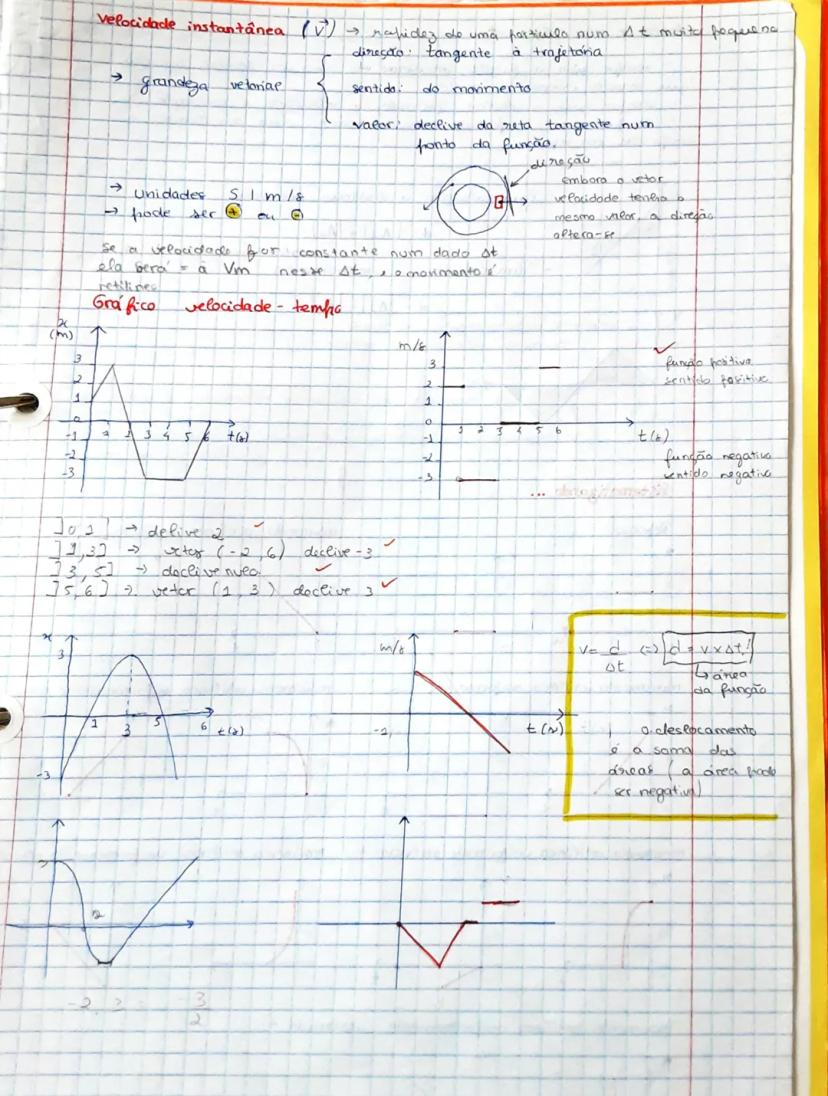 velocidade instantânea (v⃗) → rapidez de uma partícula num Δt muito pequeno
→ grandeza vetorial
direção: tangente à trajetória
sentido: do movimento
valor: declive da reta tangente num
ponto da função.
→ unidades SI m/s
→ pode ser + ou -
direção
embora o vetor
velocidade tenha o
mesmo valor, a direção
altera-se
se a velocidade for constante num dado Δt
ela será = à Vm nesse Δt, e o movimento é
retilíneo
Gráfico velocidade-tempo
x
(m)
3
2
1
0
-1
-2
-3
3 4 5 6 t(s)
m/s
3
2
1
0
-1
-2
-3
1 2 3 4 5 6
t(s)
função positiva
sentido positivo
função negativa
sentido negativo
]0,1] → delive 2
]1,3] → vetor (-2,6) declive -3
]3,5] → declive nulo
]5,6] → vetor (1,3) declive 3
x
3
-3
1 3 5 6 t(s)
m/s
-2
t(s)
v = d/Δt (=) d = v x Δt
↳ área
da função
o deslocamento
é a soma das
áreas (a área pode
ser negativa)
2
-2 3
3
2